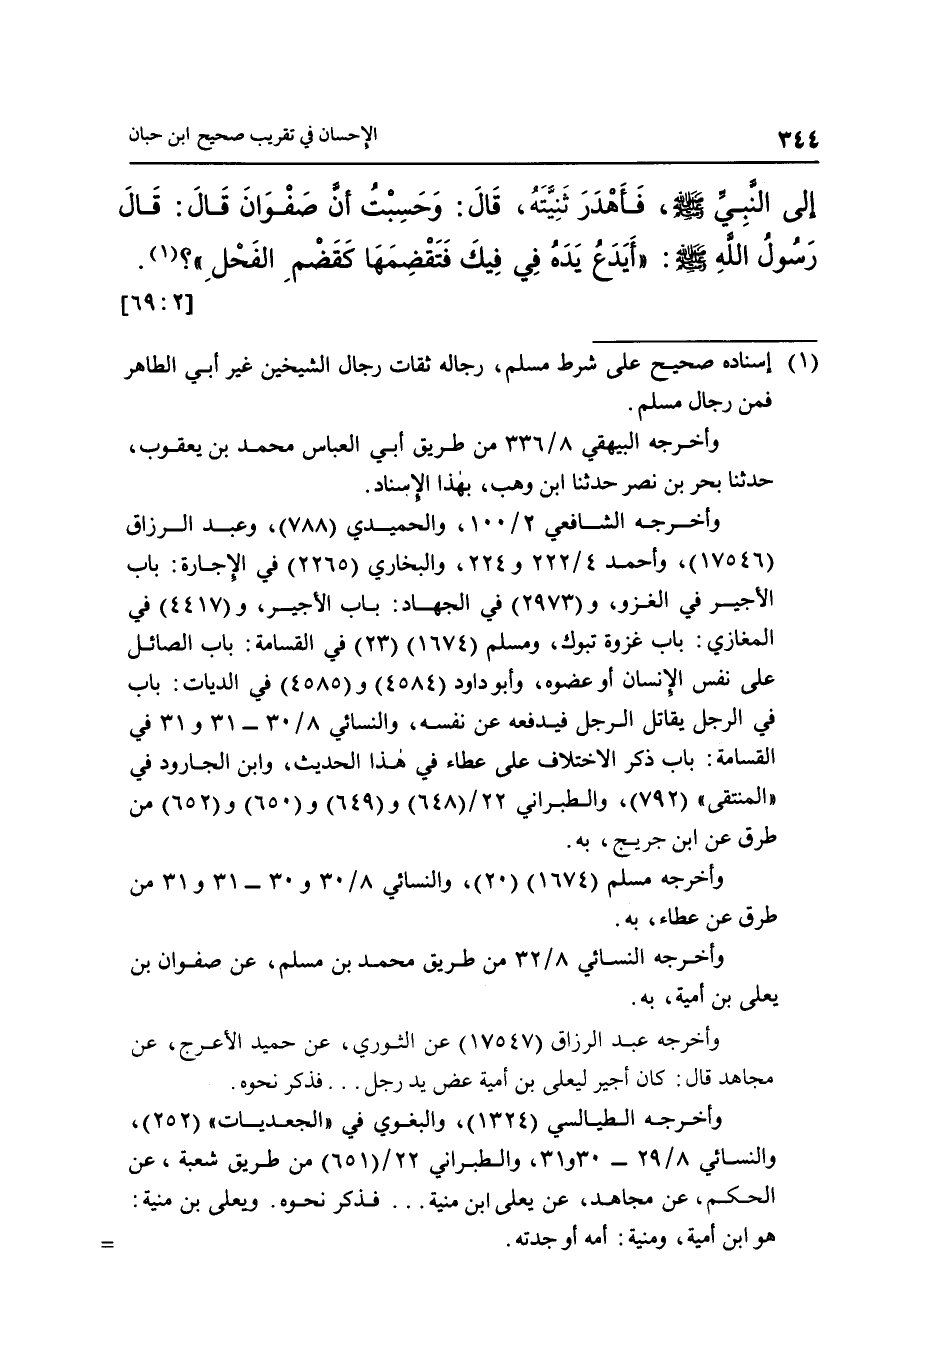 ٣٤٤ الإحسان في تقريب صحيح ابن حبان
إلى النَّبِيِّ ﷺ، فَأَهْدَرَ ثَنِيَّتَهُ، قَالَ: وَحَسِبْتُ أنَّ صَفْوَانَ قَالَ: قَالَ
رَسُولُ اللَّهِ ﷺ: «أَيَدَعُ يَدَهُ فِي فِيكَ فَتَقْضِمَهَا كَقَضْمِ الفَحْلِ»؟(١).
[٢: ٦٩]
(١) إسناده صحيح على شرط مسلم، رجاله ثقات رجال الشيخين غير أبي الطاهر
فمن رجال مسلم.
وأخرجه البيهقي ٣٣٦/٨ من طريق أبي العباس محمد بن يعقوب،
حدثنا بحر بن نصر حدثنا ابن وهب، بهٰذا الإسناد.
وأخرجه الشافعي ١٠٠/٢، والحميدي (٧٨٨)، وعبد الرزاق
(١٧٥٤٦)، وأحمد ٢٢٢/٤ و ٢٢٤، والبخاري (٢٢٦٥) في الإجارة: باب
الأجير في الغزو، و(٢٩٧٣) في الجهاد: باب الأجير، و(٤٤١٧) في
المغازي: باب غزوة تبوك، ومسلم (١٦٧٤) (٢٣) في القسامة: باب الصائل
على نفس الإنسان أو عضوه، وأبو داود (٤٥٨٤) و(٤٥٨٥) في الديات: باب
في الرجل يقاتل الرجل فيدفعه عن نفسه، والنسائي ٣٠/٨ – ٣١ و ٣١ في
القسامة: باب ذكر الاختلاف على عطاء في هٰذا الحديث، وابن الجارود في
«المنتقى» (٧٩٢)، والطبراني ٢٢/(٦٤٨) و(٦٤٩) و(٦٥٠) و(٦٥٢) من
طرق عن ابن جريج، به.
وأخرجه مسلم (١٦٧٤) (٢٠)، والنسائي ٣٠/٨ و ٣٠ – ٣١ و ٣١ من
طرق عن عطاء، به.
وأخرجه النسائي ٣٢/٨ من طريق محمد بن مسلم، عن صفوان بن
يعلى بن أمية، به.
وأخرجه عبد الرزاق (١٧٥٤٧) عن الثوري، عن حميد الأعرج، عن
مجاهد قال: كان أجير ليعلى بن أمية عض يد رجل... فذكر نحوه.
وأخرجه الطيالسي (١٣٢٤)، والبغوي في «الجعديات» (٢٥٢)،
والنسائي ٢٩/٨ – ٣٠و٣١، والطبراني ٢٢/(٦٥١) من طريق شعبة، عن
الحكم، عن مجاهد، عن يعلى ابن منية... فذكر نحوه. ويعلى بن منية:
هو ابن أمية، ومنية: أمه أو جدته. =